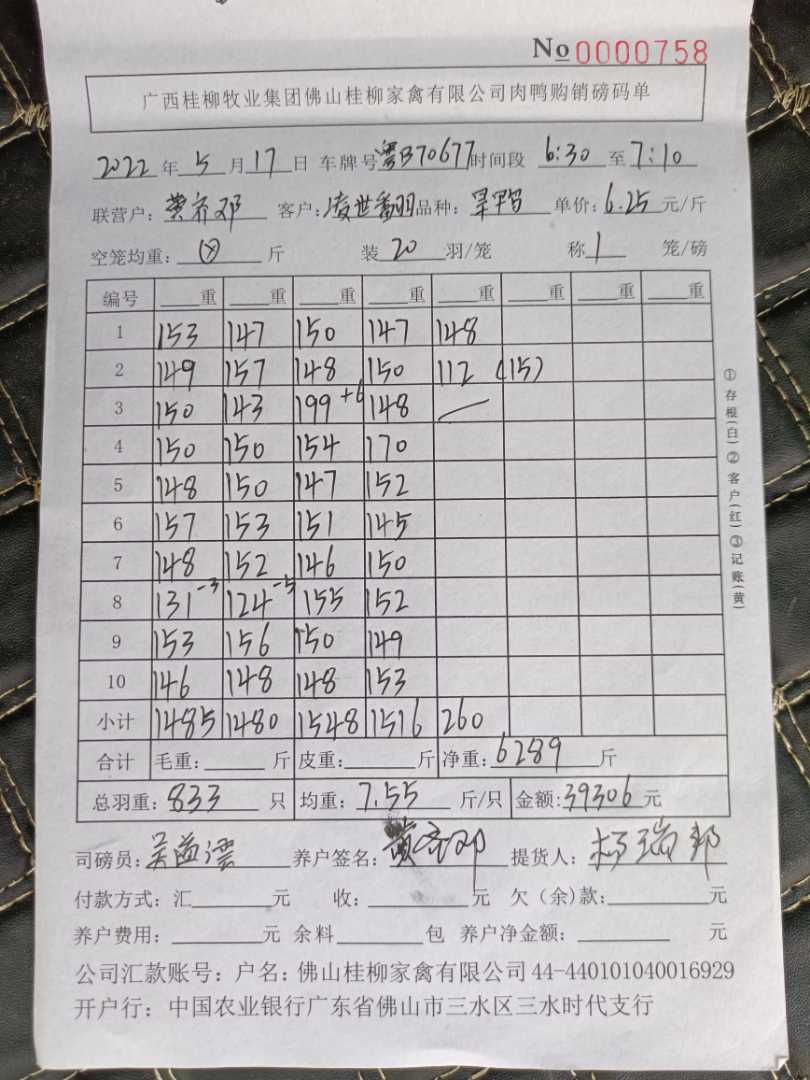 No 0000758
广西桂柳牧业集团佛山桂柳家禽有限公司肉鸭购销磅码单
2022年5月17日 车牌号粤B70677时间段 6:30至7:10
联营户: 黄齐邓 客户:凌世翻 品种: 单价:6.25元/斤
空笼均重: 斤 装20羽/笼 称1笼/磅
编号 重 重 重 重 重 重 重 重
1 153 147 150 147 148
2 149 157 148 150 112 (15)
3 150 143 199+6 148
4 150 150 154 170
5 148 150 147 152
6 157 153 151 145
7 148 152 146 150
8 131-3 124-5 155 152
9 153 156 150 149
10 146 148 148 153
小计 1485 1480 1548 1516 260
合计 毛重: 斤 皮重: 斤 净重:6289斤
总羽重:833只 均重:7.55斤/只 金额:39306元
司磅员: 养户签名:黄齐邓 提货人:杨瑞邦
付款方式:汇 元 收: 元 欠(余)款: 元
养户费用: 元 余料 包 养户净金额: 元
公司汇款账号:户名:佛山桂柳家禽有限公司 44-440101040016929
开户行:中国农业银行广东省佛山市三水区三水时代支行
①存根(白)②客户(红)③记账(黄)